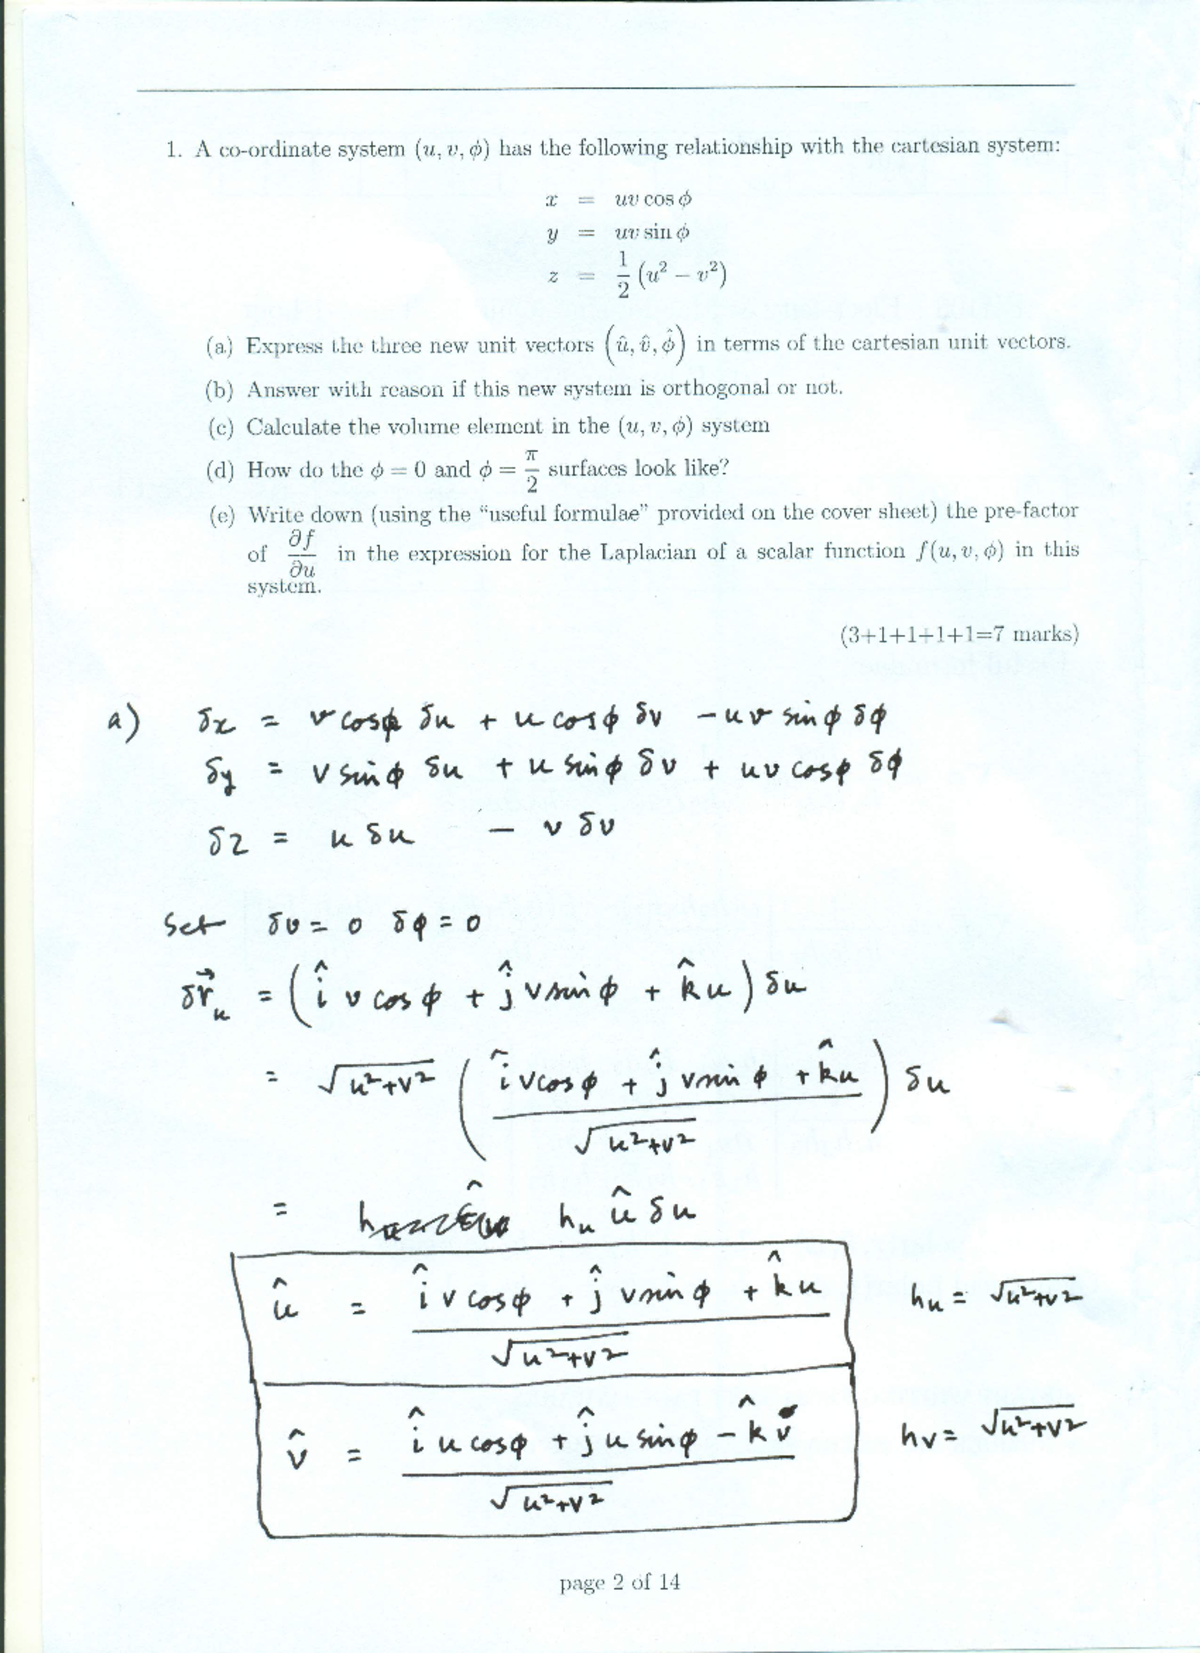 1. A co-ordinate system (u, v, ϕ) has the following relationship with the cartesian system:
x = uv cos ϕ
y = uv sin ϕ
z = 1/2 (u² − v²)
(a) Express the three new unit vectors (û, v̂, ϕ̂) in terms of the cartesian unit vectors.
(b) Answer with reason if this new system is orthogonal or not.
(c) Calculate the volume element in the (u, v, ϕ) system
(d) How do the ϕ = 0 and ϕ = π/2 surfaces look like?
(e) Write down (using the “useful formulae” provided on the cover sheet) the pre-factor
of ∂f/∂u in the expression for the Laplacian of a scalar function f(u, v, ϕ) in this
system.
(3+1+1+1+1=7 marks)
a) δx = v cosϕ δu + u cosϕ δv − uv sinϕ δϕ
δy = v sinϕ δu + u sinϕ δv + uv cosϕ δϕ
δz = u δu − v δv
Set δv = 0 δϕ = 0
δr⃗_u = (î v cosϕ + ĵ v sinϕ + k̂ u) δu
= √(u²+v²) ((î v cosϕ + ĵ v sinϕ + k̂ u)/√(u²+v²)) δu
= h_u û δu
û = (î v cosϕ + ĵ v sinϕ + k̂ u)/√(u²+v²) h_u = √(u²+v²)
v̂ = (î u cosϕ + ĵ u sinϕ − k̂ v)/√(u²+v²) h_v = √(u²+v²)
page 2 of 14